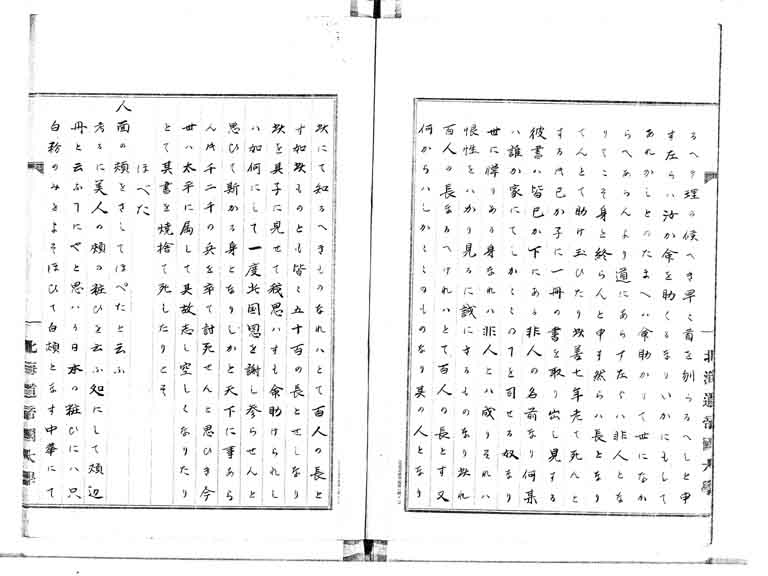 るへき理の候へき早々首を刎らるへしと申
す左らハ汝か命を助くるなりいかにもして
あれかしとのたまへハ命助かりて世になか
らへあらんより道にあらす左らハ非人とな
りてこそ身を終らんと申す然らハ長となり
てんとて助け玉ひたり玖善七年老て死んと
する時己か子に一冊の書を取り出し見する
彼書ハ皆己か下にある非人の名前なり何某
ハ誰か家にてしかしかのヿを司せる奴なり
世に憚りある身なれハ非人とハ成りそれハ
恨性をいかり見るに誠にするものなり玖れし
百人の長なるへけれハとて百人の長とす又
何からハしかしかのものなり其の人となり
玖にて知るへきものなれハとて百人の長と
す如玖ものとも皆々五十百の長とせしなり
玖を其子に見せて我思ハすも命助けられし
ハ如何にして一度此国恩を謝し参らせんと
思ひて斯かる身となりしかと天下に事あら
ん時千二千の兵を卒て討死せんと思ひき今
世ハ太平に属して其故志し空しくなりたり
とて其書を焼捨て死したりとそ
ほべた
人面の頬をさしてほべたと云ふ
考るに美人の頬の粧ひを云ふ処にして頬辺
丹と云ふヿにやと思いる日本の粧ひにハ只
白粉のみをよそほひて白頬となす中華にて
北海道帝國大學
北海道帝國大學